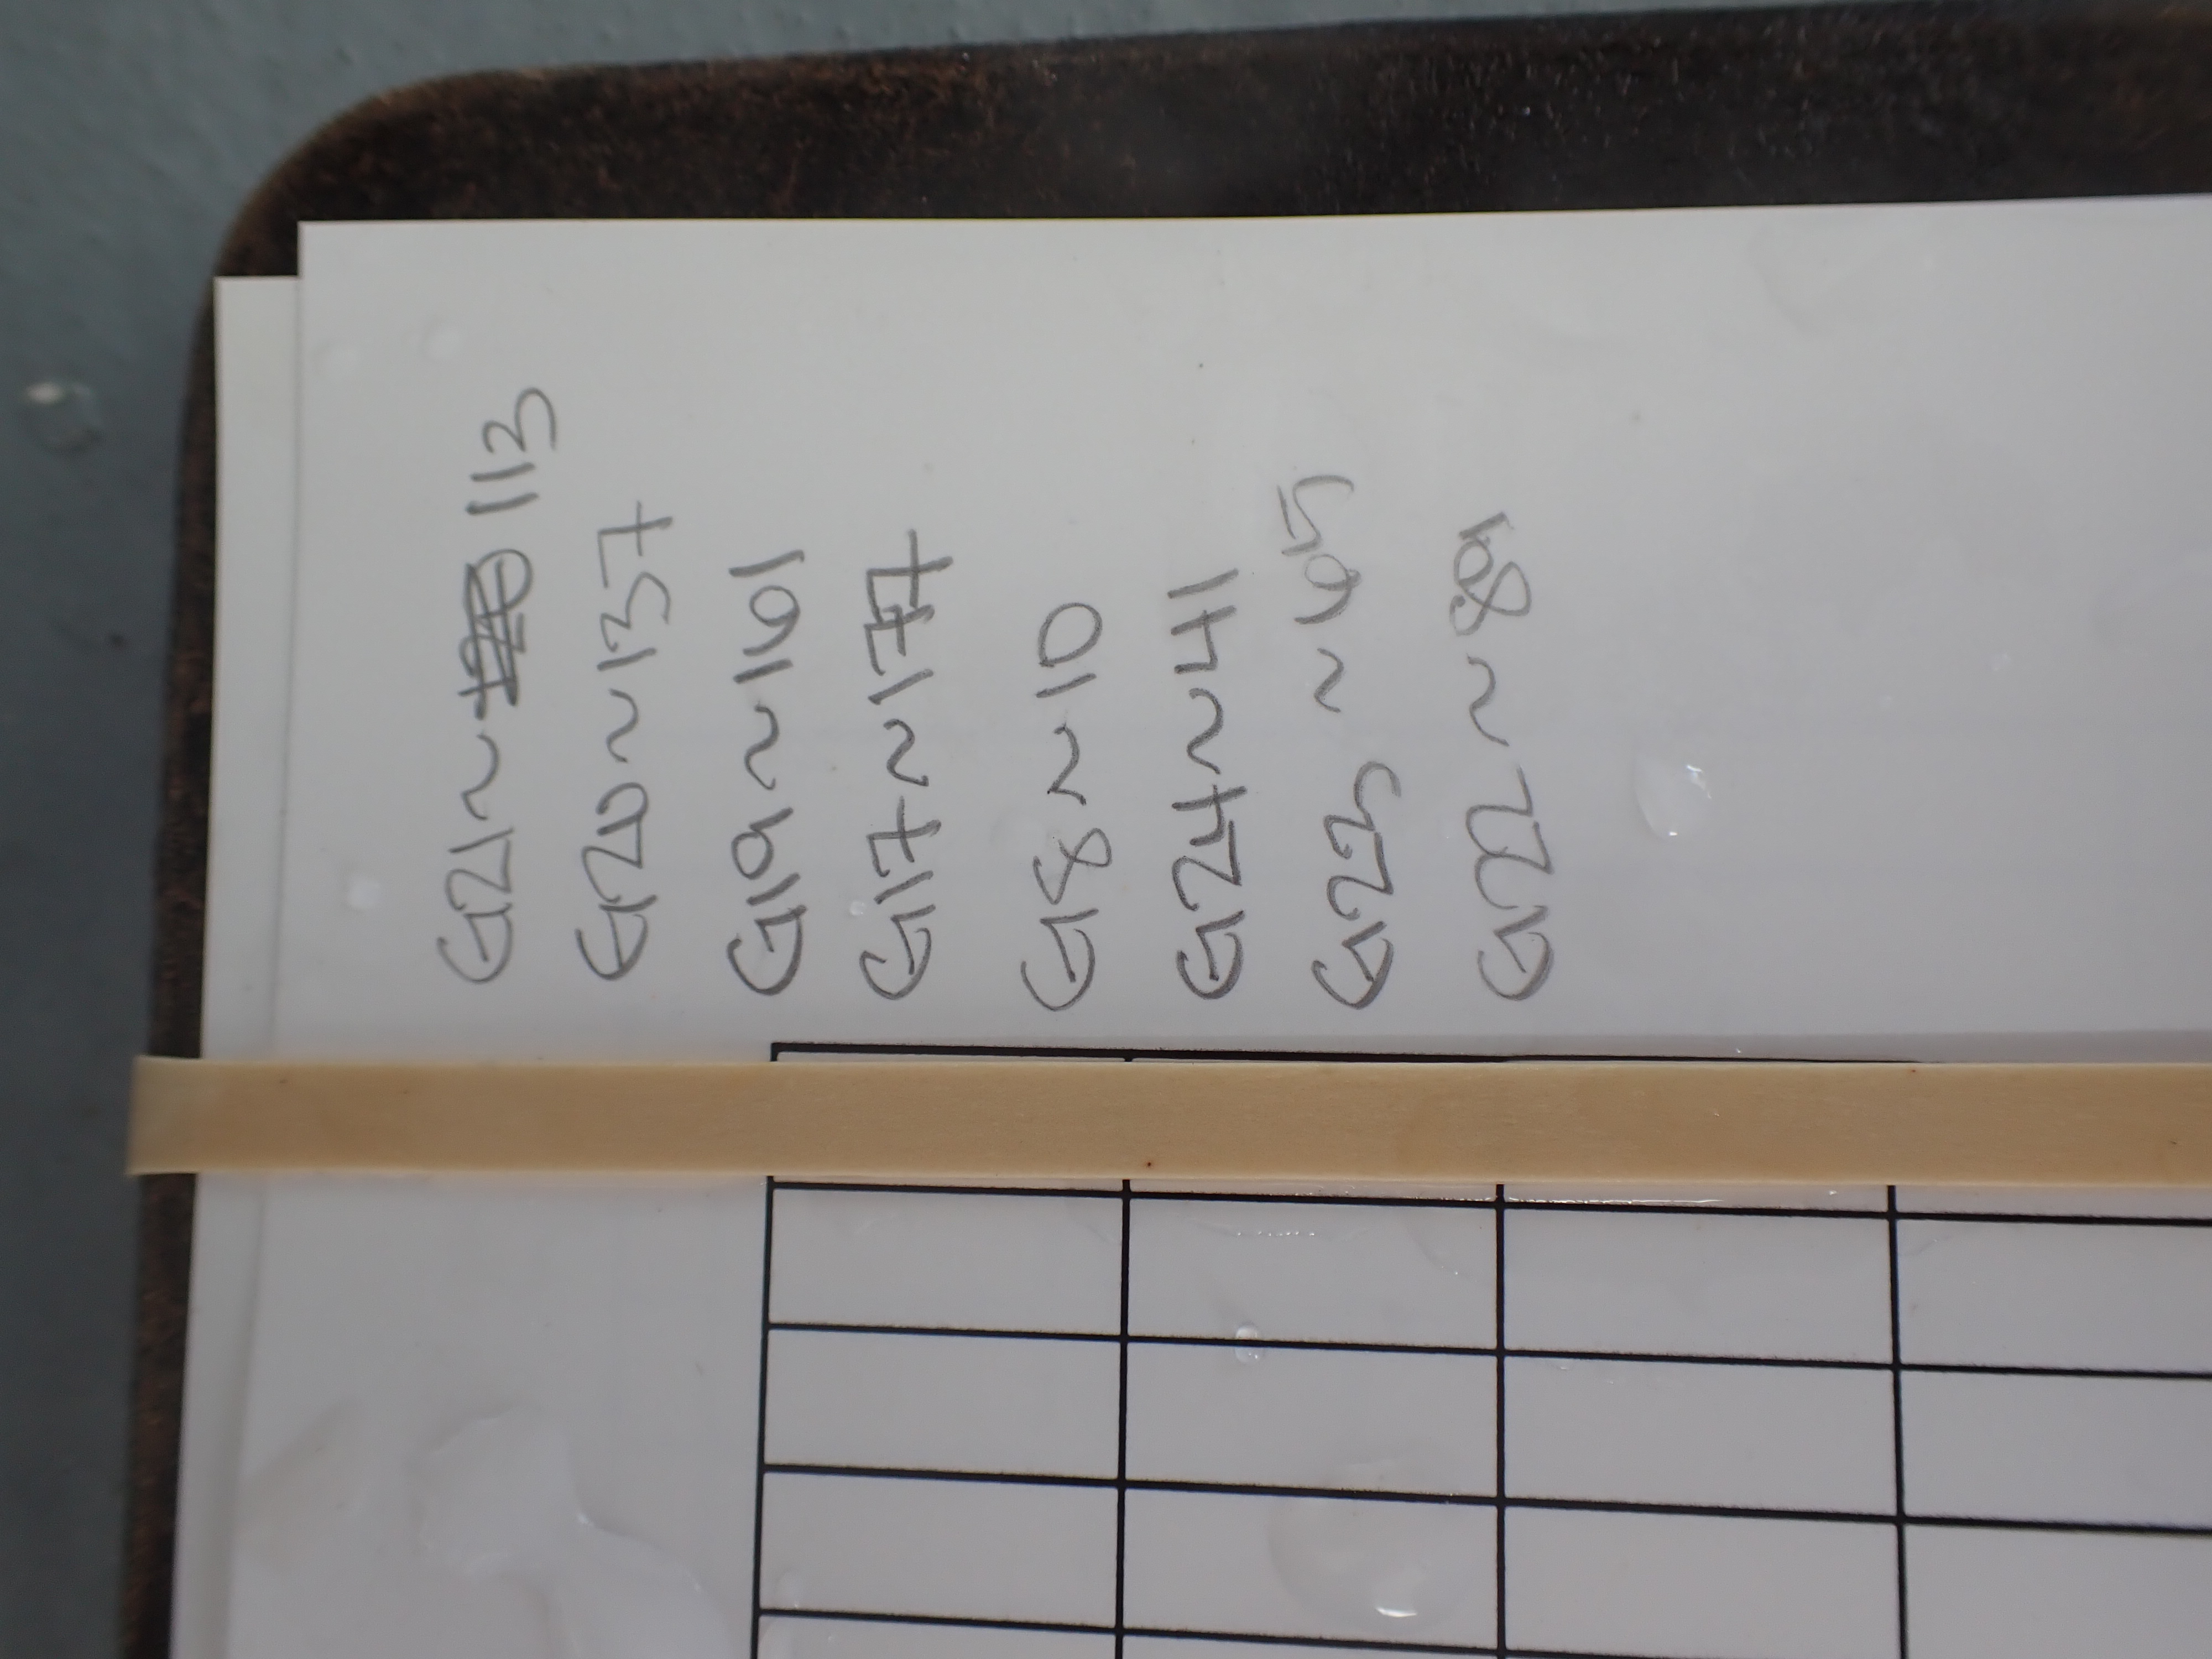 G21 ~ 113
G20 ~ 137
G19 ~ 161
G17 ~ 177
G8 ~ 10
G24 ~ 41
G23 ~ 65
G22 ~ 89